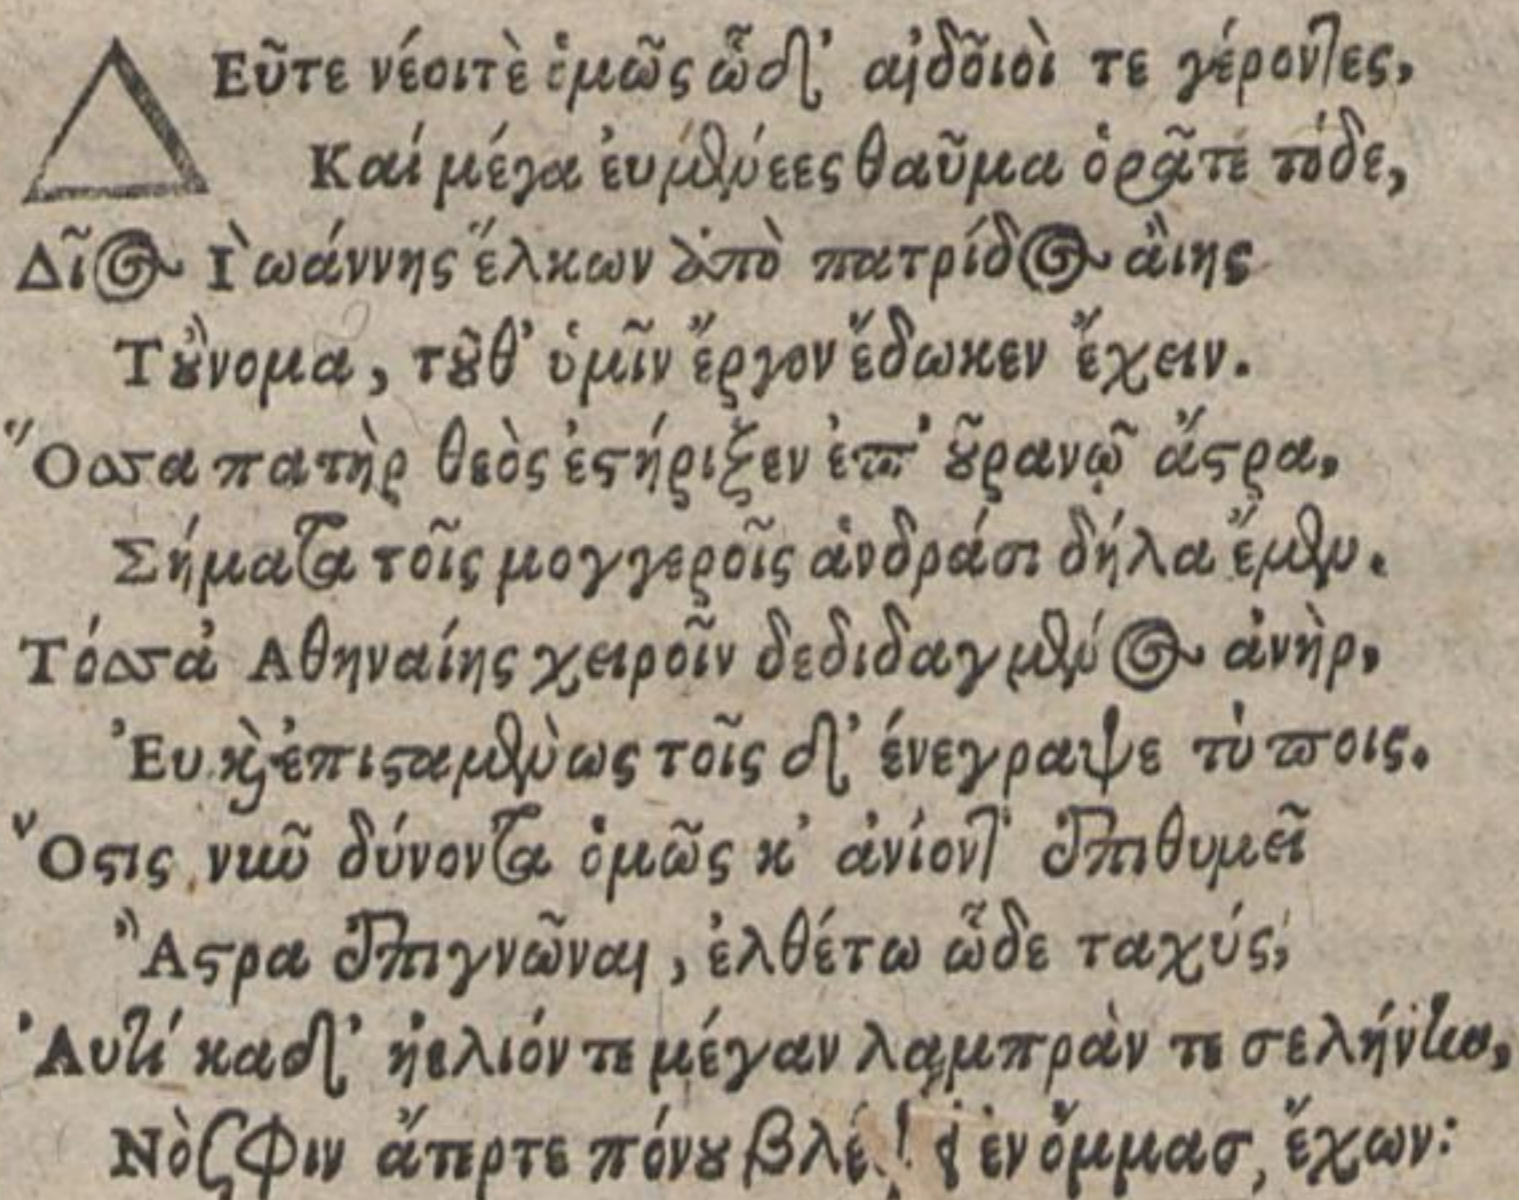 ΔΕῦτε νέοιτὲ ὁμῶς ὧδ' αἰδοῖοὶ τε γέροντες,
Καί μέγα ἐυμενέες θαῦμα ὁρᾶτε τόδε,
Δῖος Ἰωάννης ἕλκων ἀπὸ πατρίδος ἄιης
Τοὔνομα, τοῦθ' ὑμῖν ἔργον ἔδωκεν ἔχειν.
Ὅσσα πατὴρ θεὸς ἐστήριξεν ἐπ' οὖρανῷ ἄστρα,
Σήματα τοῖς μογγεροῖς ἀνδράσι δήλα ἔμεν.
Τόσσα Ἀθηναίης χειροῖν δεδιδαγμένος ἀνὴρ,
Ἐυ καὶ ἐπισταμένως τοῖς δ' ένεγραψε τύποις.
Ὅστις νιῦ δύνοντα ὁμῶς κ' ἀνίοντ' ἐπιθυμεῖ
Ἄστρα ἐπιγνῶναι, ἐλθέτω ὧδε ταχύς,
Ἀυτί καδ' ἠελιόν τε μέγαν λαμπρὰν τε σελήνην,
Νὸσφιν ἄπερτε πόνου ἐν ὄμμασ, ἔχων: